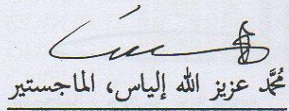 مُحَمَّد عزيز الله إلياس، الماجستير